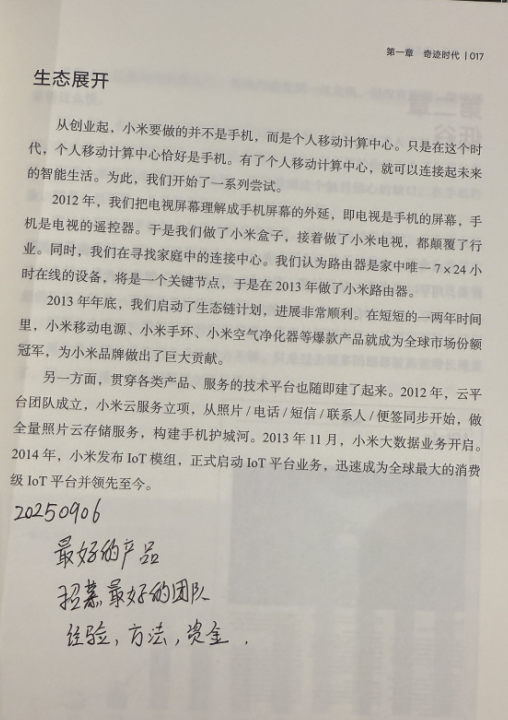 第一章　奇迹时代 | 017
生态展开
从创业起，小米要做的并不是手机，而是个人移动计算中心。只是在这个时
代，个人移动计算中心恰好是手机。有了个人移动计算中心，就可以连接起未来
的智能生活。为此，我们开始了一系列尝试。
2012 年，我们把电视屏幕理解成手机屏幕的外延，即电视是手机的屏幕，手
机是电视的遥控器。于是我们做了小米盒子，接着做了小米电视，都颠覆了行
业。同时，我们在寻找家庭中的连接中心。我们认为路由器是家中唯一 7×24 小
时在线的设备，将是一个关键节点，于是在 2013 年做了小米路由器。
2013 年年底，我们启动了生态链计划，进展非常顺利。在短短的一两年时间
里，小米移动电源、小米手环、小米空气净化器等爆款产品就成为全球市场份额
冠军，为小米品牌做出了巨大贡献。
另一方面，贯穿各类产品、服务的技术平台也随即建了起来。2012 年，云平
台团队成立，小米云服务立项，从照片 / 电话 / 短信 / 联系人 / 便签同步开始，做
全量照片云存储服务，构建手机护城河。2013 年 11 月，小米大数据业务开启。
2014 年，小米发布 IoT 模组，正式启动 IoT 平台业务，迅速成为全球最大的消费
级 IoT 平台并领先至今。
20250906
最好的产品
招慕最好的团队
经验，方法，资金．